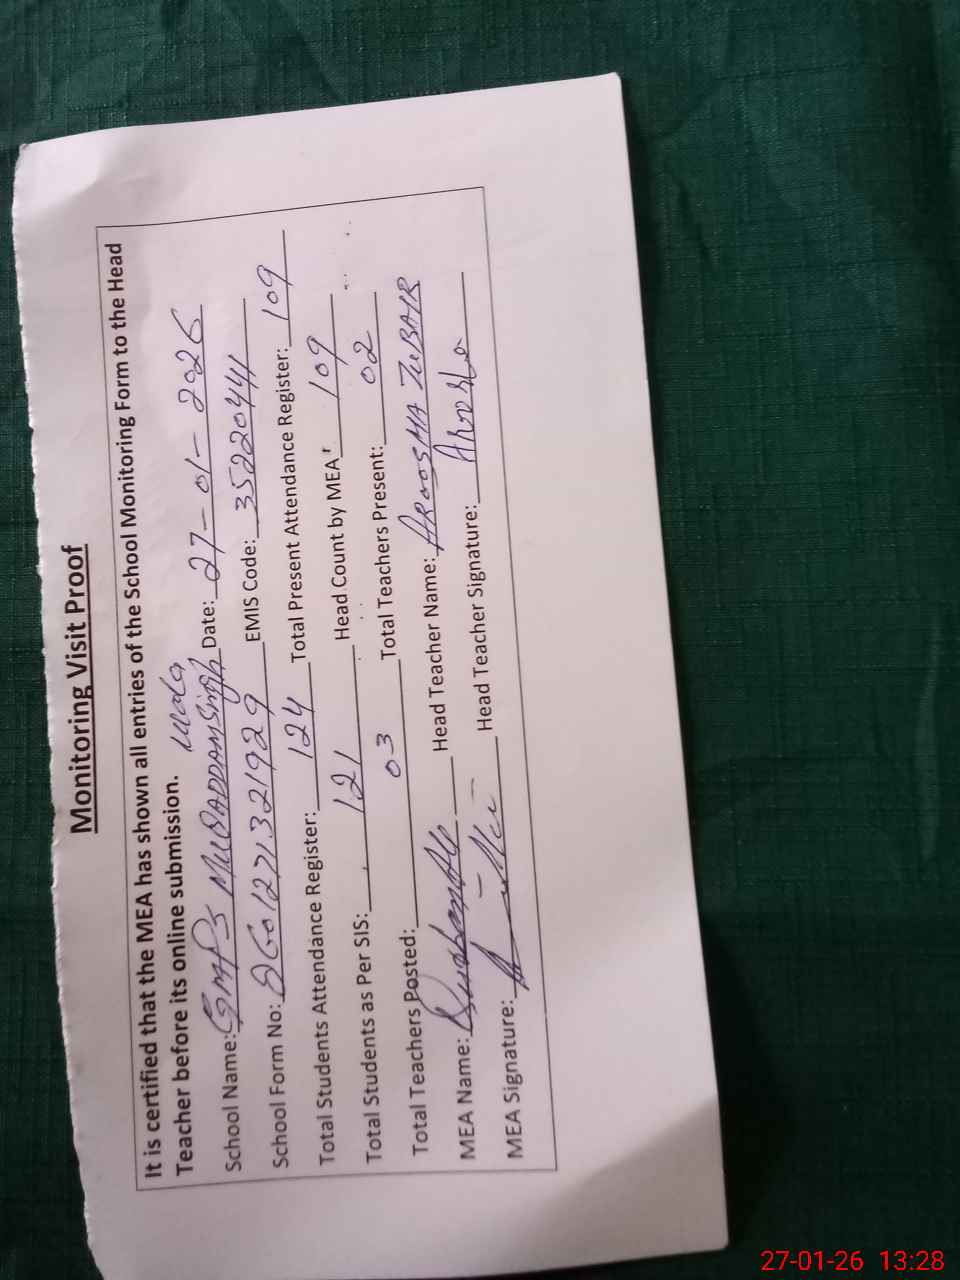 Monitoring Visit Proof
It is certified that the MEA has shown all entries of the School Monitoring Form to the Head
Teacher before its online submission.
School Name: GMPS MUQADDAM Singh Wala Date: 27-01-2026
School Form No: EMIS Code: 35220441
Total Students Attendance Register: 124 Total Present Attendance Register: 109
Total Students as Per SIS: 121 Head Count by MEA 109
Total Teachers Posted: 03 Total Teachers Present: 02
MEA Name: Head Teacher Name: AROOSMA ZUBAIR
MEA Signature: Head Teacher Signature:
27-01-26 13:28